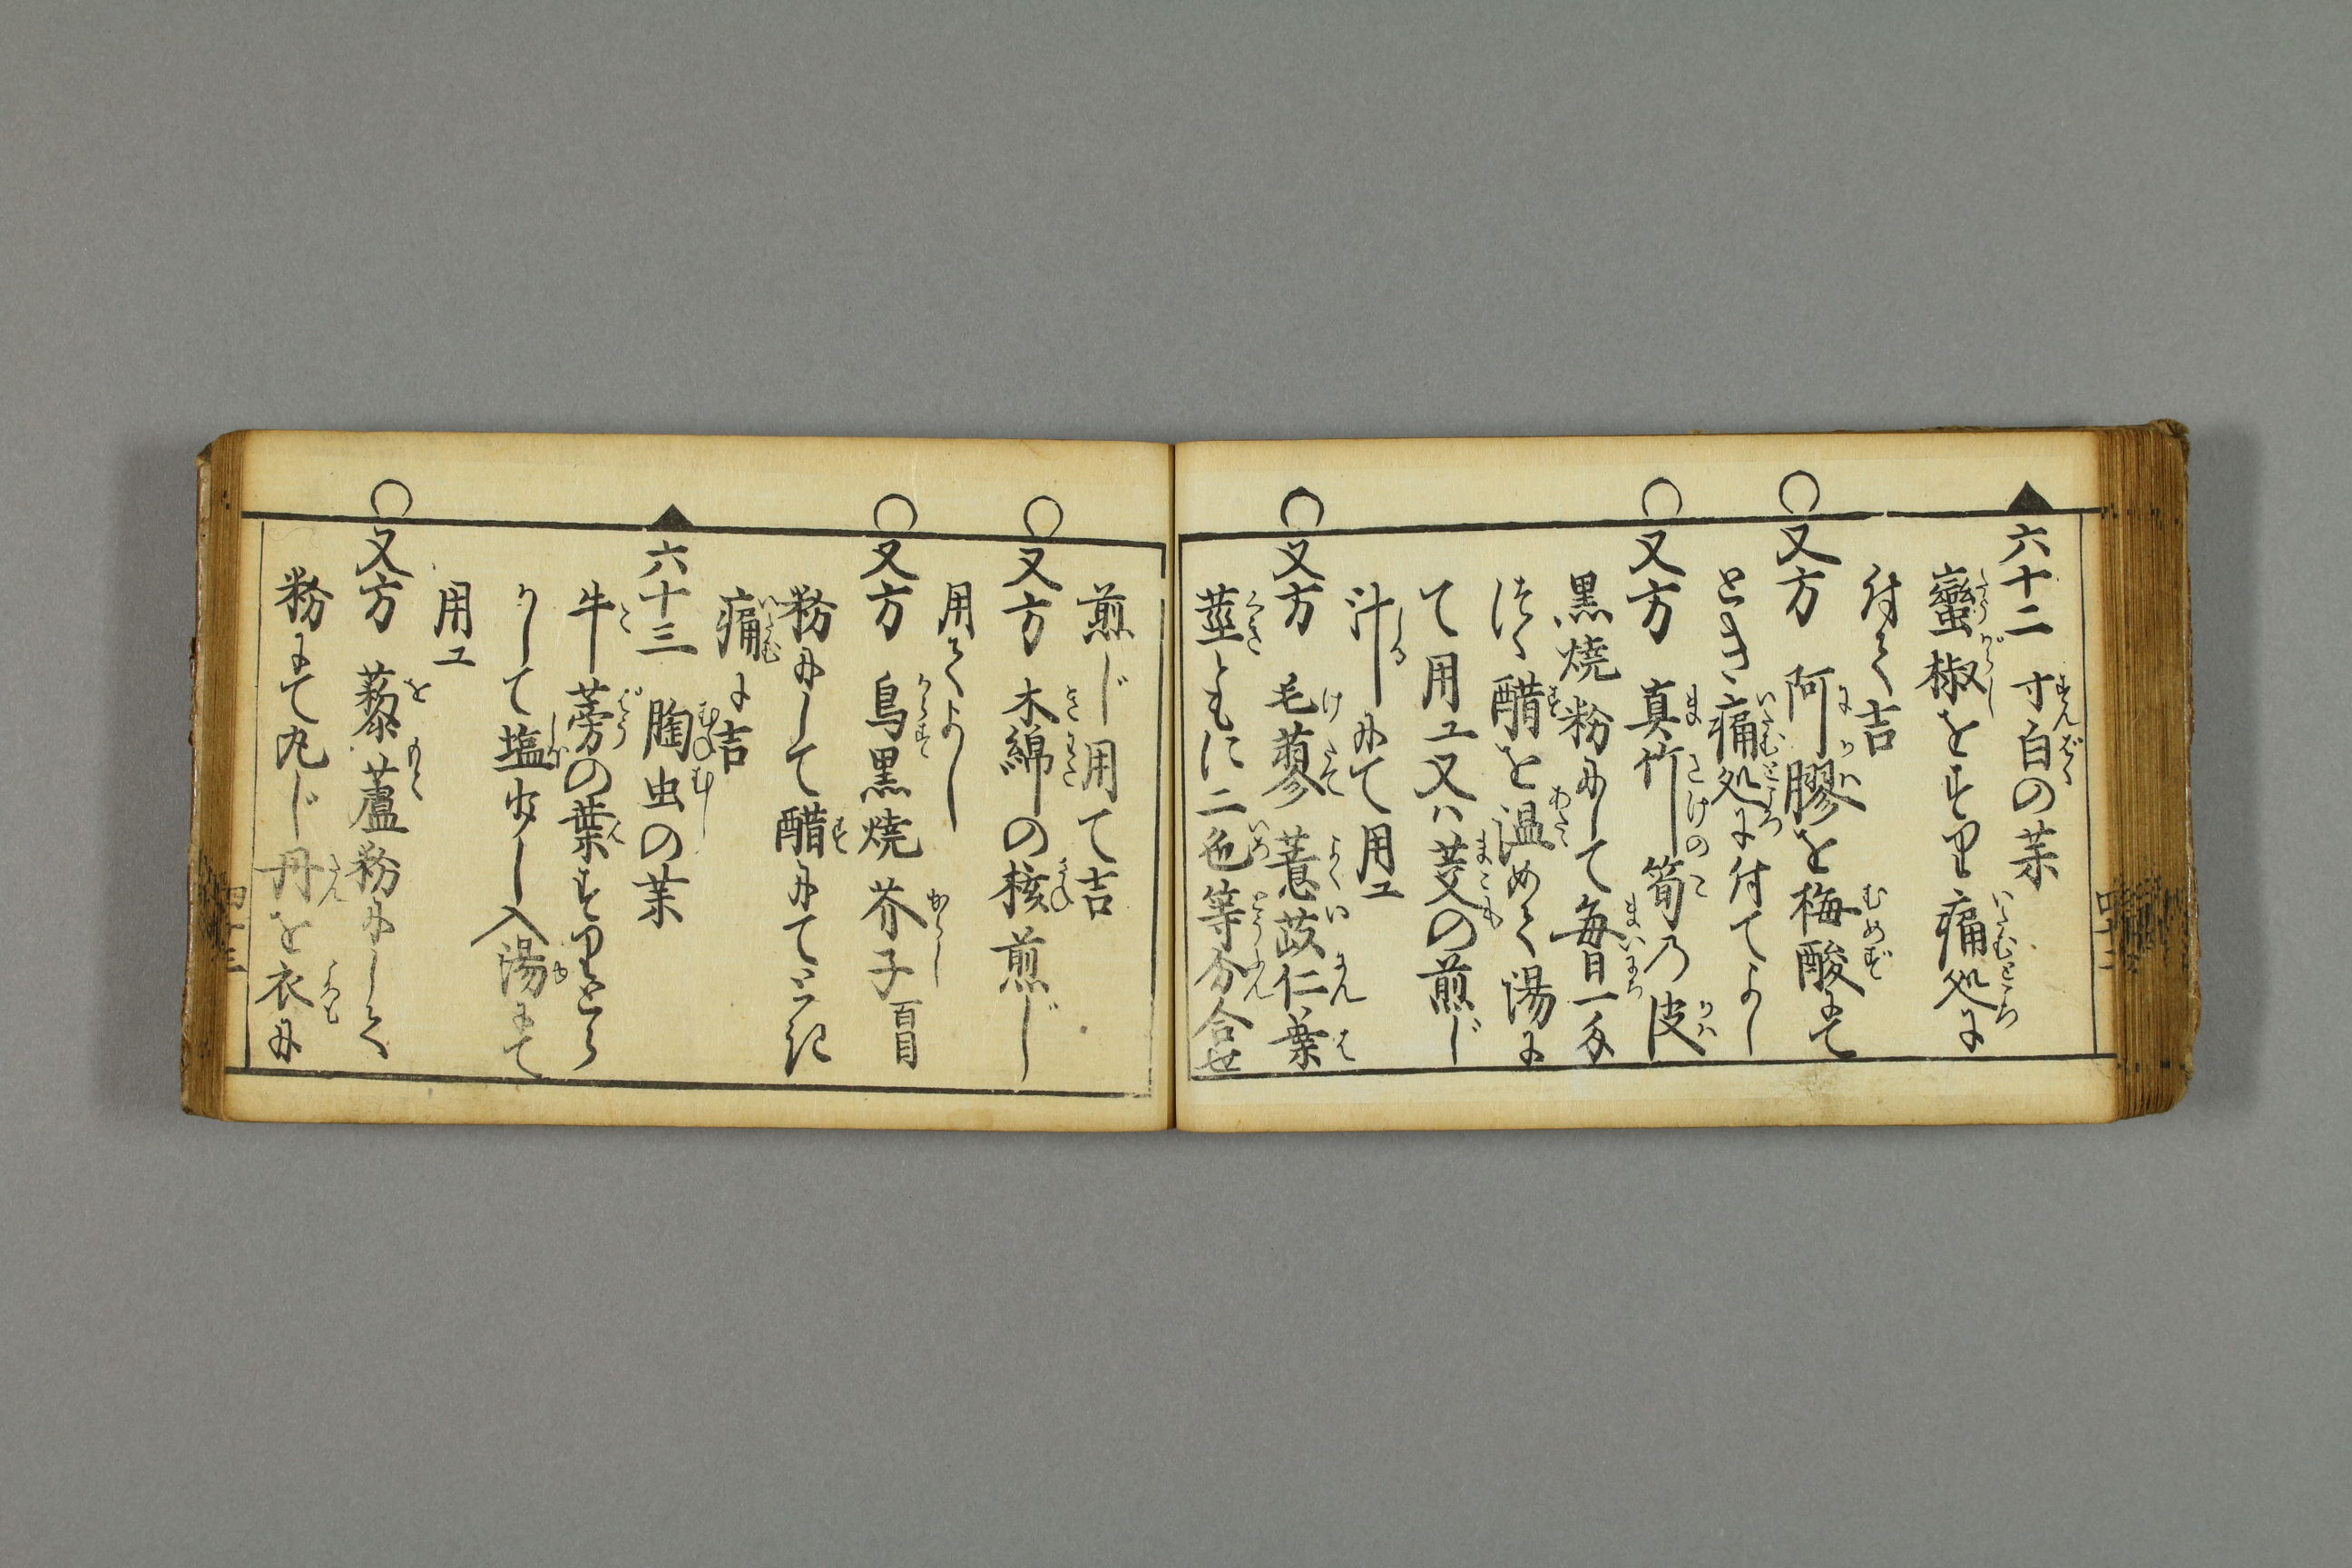 六十二 寸白の茱
蠻椒をすり痛処に
付て吉
又方 阿膠を梅酸にて
とき痛処に付てよし
又方 真竹筍乃皮
黒焼粉にして毎日一匁
づゝ醋を温めて湯に
て用ユ又ハ茭の煎じ
汁にて用ユ
又方 毛蓼薏苡仁葉
茎ともに二色等分合せ
煎じ用て吉
又方 木綿の核煎じ
用てよし
又方 烏黒焼芥子百目
粉にして醋にてとき
痛に吉
六十三 胸虫の茱
牛蒡の葉すりとろ
かして塩少し入湯にて
用ユ
又方 藜蘆粉にして
粉にて丸じ丹を衣に
四十二
四十三